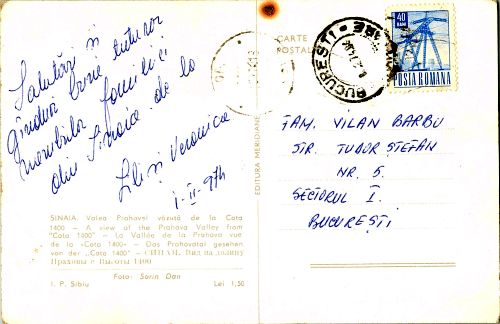 Salutări și
gînduri bune tuturor
membrilor familiei
din Sinaia de la
Lili și Veronica
1-II-974
SINAIA. Valea Prahovei văzută de la Cota
1400 — A view of the Prahova Valley from
"Cota 1400" — La Vallée de la Prahova vue
de la «Cota 1400» — Das Prahovatal gesehen
von der „Cota 1400" — СИНАЯ. Вид на долину
Праховы с Высоты 1400
Foto: Sorin Dan
I. P. Sibiu
Lei 1,50
EDITURA MERIDIANE
CARTE
POSTALĂ
BUCUREȘTI
40
BANI
POSTA ROMANA
FAM. VILAN BARBU
STR. TUDOR ȘTEFAN
NR. 5
SECTORUL I.
BUCUREȘTI